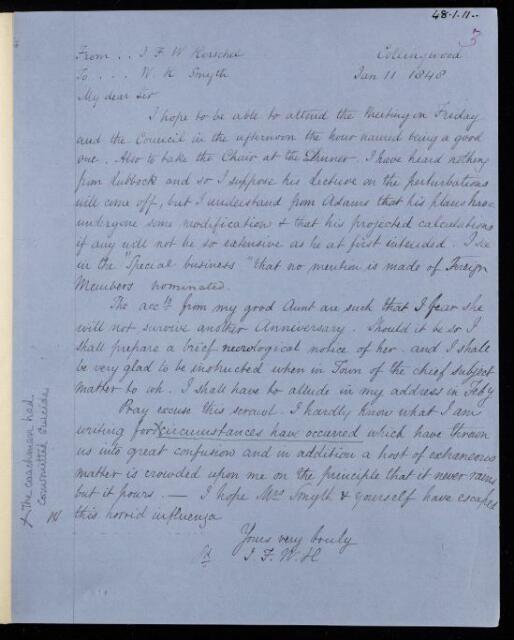 48-1-11-
3
From .. J F W Herschel Collingwood
To ... W. H Smyth Jan 11 1848
My dear Sir
I hope to be able to attend the Meeting on Friday
and the Council in the afternoon the hour named being a good
one. Also to take the Chair at the Dinner. I have heard nothing
from Lubbock and so I suppose his Lecture on the perturbations
will come off, but I understand from Adams that his plans have
undergone some modification & that his projected calculations
if any will not be so extensive as he at first intended. I see
in the "Special business" that no mention is made of Foreign
Members nominated.
The accts from my good Aunt are such that I fear she
will not survive another Anniversary. Should it be so I
shall prepare a brief necrological notice of her and I shall
be very glad to be instructed when in Town of the chief subject
matter to wh. I shall have to allude in my address in Feby
Pray excuse this scrawl. I hardly know what I am
writing for X circumstances have occurred which have thrown
us into great confusion and in addition a host of extraneous
matter is crowded upon me on the principle that it never rains
but it pours. — I hope Mrs Smyth & yourself have escaped
this horrid influenza
Yours very truly
J. F. W. H
X The coachman had
committed suicide